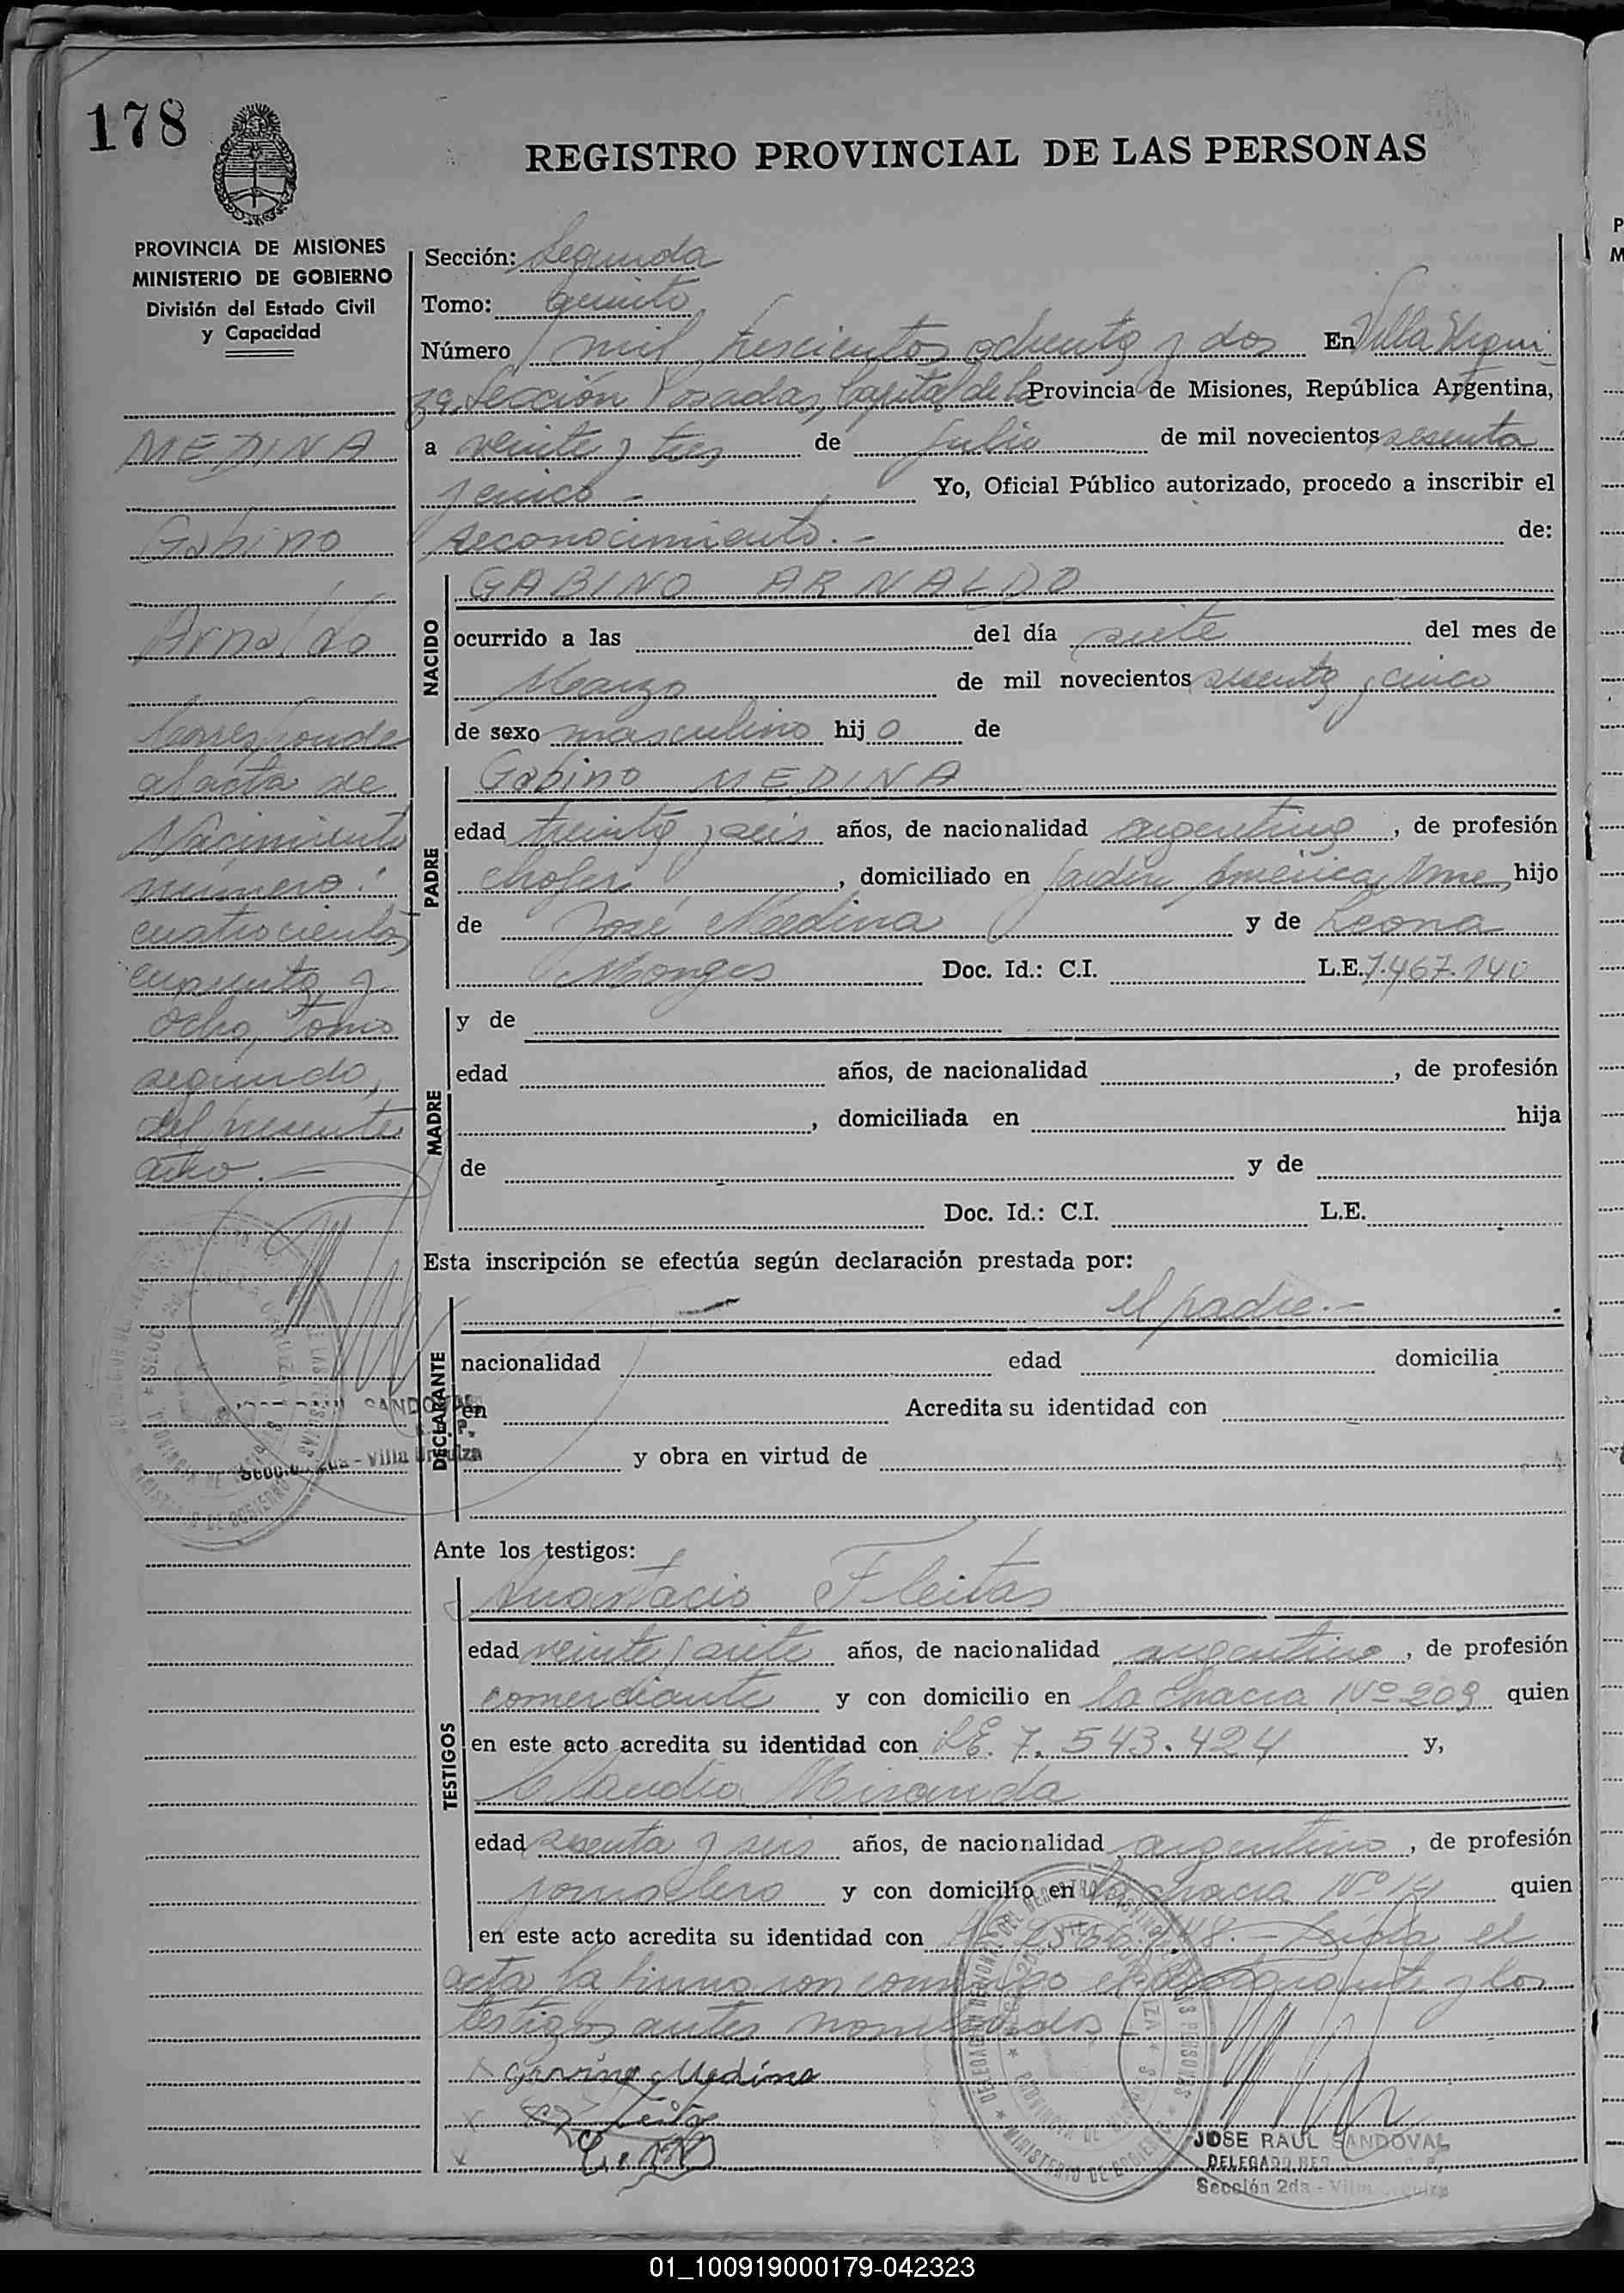 178
REGISTRO PROVINCIAL DE LAS PERSONAS
PROVINCIA DE MISIONES
MINISTERIO DE GOBIERNO
División del Estado Civil
y Capacidad
MEDINA
Gabino
Arnaldo
Corresponde
al acta de
Nacimiento
número:
cuatrocientos
cincuenta y
ocho, Tomo
segundo,
del presente
año.-
Sección: Segunda
Tomo: quinto
Número mil trescientos ochenta y dos En Villa Urqui-
za, Sección Posadas, Capital de la Provincia de Misiones, República Argentina,
a veinte y tres de Julio de mil novecientos sesenta
y cinco - Yo, Oficial Público autorizado, procedo a inscribir el
reconocimiento.- de:
NACIDO
GABINO ARNALDO
ocurrido a las del día siete del mes de
Marzo de mil novecientos sesenta y cinco
de sexo masculino hijo de
PADRE
Gabino MEDINA
edad treinta y seis años, de nacionalidad argentino, de profesión
chofer, domiciliado en Jardín América, Mnes, hijo
de José Medina y de Leona
Monges Doc. Id.: C.I. L.E. 7.467.140
MADRE
y de
edad años, de nacionalidad , de profesión
, domiciliada en hija
de y de
Doc. Id.: C.I. L.E.
Esta inscripción se efectúa según declaración prestada por:
DECLARANTE
el padre.-
nacionalidad edad domicilia
en Acredita su identidad con
y obra en virtud de
Ante los testigos:
TESTIGOS
Anastacio Fleitas
edad veinte y siete años, de nacionalidad argentino, de profesión
comerciante y con domicilio en la chacra Nº 209 quien
en este acto acredita su identidad con L.E. 7.543.424 y,
Claudio Miranda
edad sesenta y seis años, de nacionalidad argentino, de profesión
jornalero y con domicilio en la chacra Nº quien
en este acto acredita su identidad con Leída el
acta la firman conmigo el declarante y los
testigos antes nombrados
Gavino Medina
JOSE RAUL SANDOVAL
Sección 2da - Villa Urquiza
01_100919000179-042323